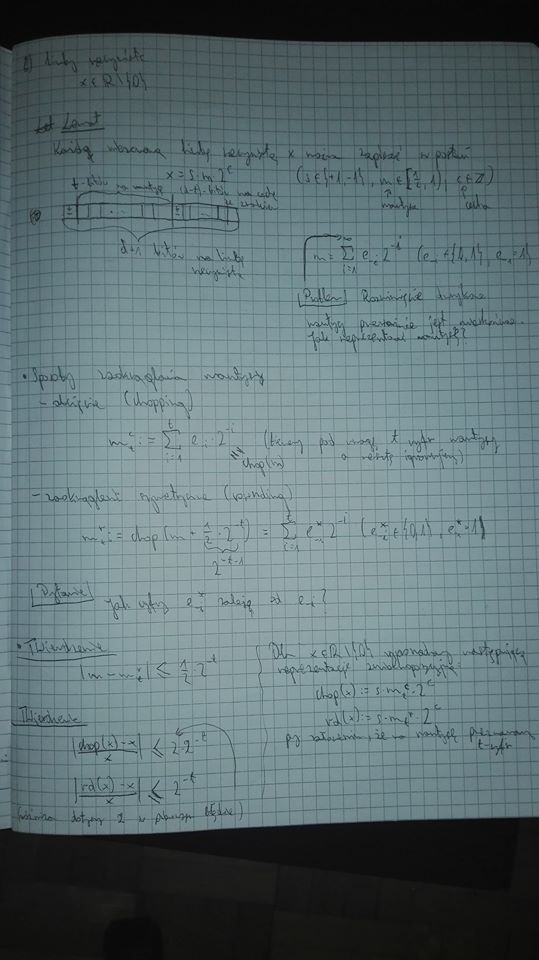 b) liczby rzeczywiste
x ∈ ℝ \ {0}
Lemat
Każdą niezerową liczbę rzeczywistą x można zapisać w postaci
x = s·m·2^c (s ∈ {+1, -1}, m ∈ [1/2, 1), c ∈ ℤ)
t-bitów na mantysę (d-t)-bitów na cechę
ze znakiem
mantysa cecha
± ±
d+1 bitów na liczbę
rzeczywistą
m = ∑_{i=1}^{∞} e_{-i} 2^{-i} (e_{-i} ∈ {0,1}, e_{-1} = 1)
Problem Rozwinięcie dwójkowe
mantysy przeważnie jest nieskończone.
Jak reprezentować mantysę?
• Sposoby zaokrąglania mantysy
- obcięcie (chopping)
m_t^c := ∑_{i=1}^{t} e_{-i} 2^{-i} (bierzemy pod uwagę t cyfr mantysy
chop(m) a resztę ignorujemy)
- zaokrąglenie symetryczne (rounding)
m_t^r := chop(m + 1/2 · 2^{-t}) = ∑_{i=1}^{t} e*_{-i} 2^{-i} (e*_{-i} ∈ {0,1}, e*_{-1} = 1)
2^{-t-1}
Pytanie Jak cyfry e*_{-i} zależą od e_{-i}?
• Twierdzenie
|m - m_t^r| ≤ 1/2 · 2^{-t}
Dla x ∈ ℝ \ {0} wprowadzamy następującą
reprezentację zmiennopozycyjną:
chop(x) := s·m_t^c·2^c
rd(x) := s·m_t^r·2^c
przy założeniu, że na mantysę przeznaczamy
t-cyfr
Twierdzenie
|(chop(x) - x)/x| ≤ 2·2^{-t}
|(rd(x) - x)/x| ≤ 2^{-t}
(różnica dotyczy 2 w pierwszym błędzie)